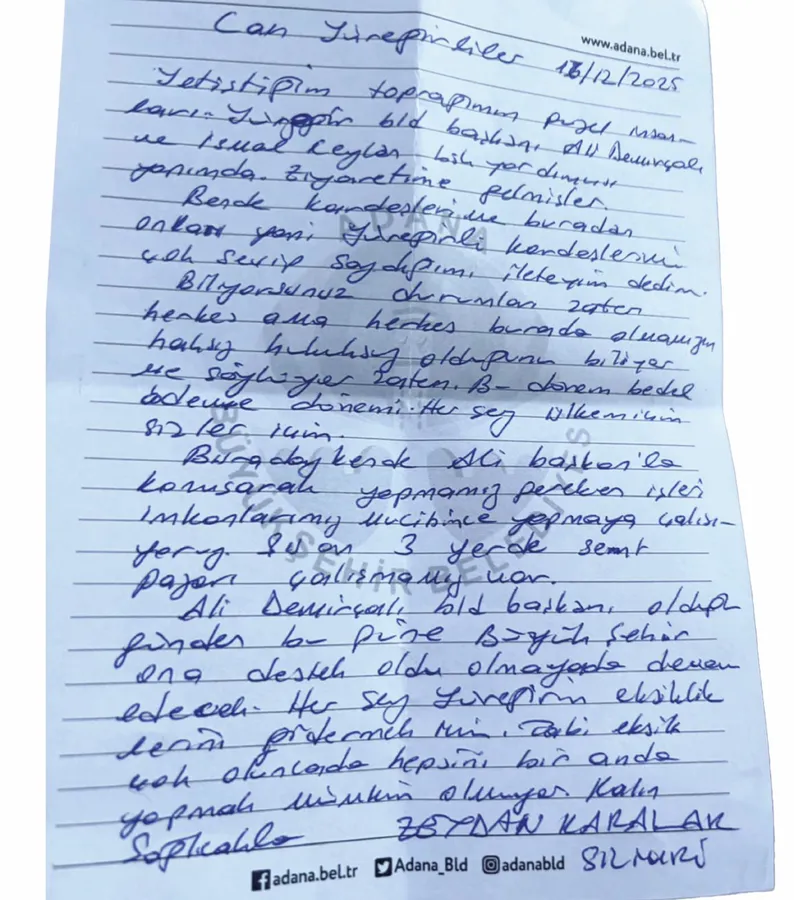 www.adana.bel.tr
Can Yüreğirliler 16/12/2025
Yetiştiğim toprağımın güzel insan-
ları. Yüreğir bld başkanı Ali Demirçalı
ve İsmal Ceylan bşk yardımcısı
yanımda. Ziyaretime gelmişler.
Bende kardeşlerime buradan
onları yani Yüreğirli kardeşlerimi
çok sevip saydığımı ileteyim dedim.
Biliyorsunuz durumları zaten
herkes ama herkes burada olmamızın
haksız hukuksuz olduğunu biliyor
ve söylüyor zaten. B- dönem bedel
ödeme dönemi. Her şey ülkem için
sizler için.
Buradaykende Ali başkan'la
konuşarak yapmamız gereken işleri
imkanlarımız mucibince yapmaya çalışı-
yoruz. Şu an 3 yerde semt
pazarı çalışmamız var.
Ali Demirçalı bld başkanı olduğu
günden bu güne Büyük Şehir
ona destek oldu olmayada devam
edecek. Her şey Yüreğirin eksiklik
lerini gidermek için. Tabi eksik
çok oluncada hepsini bir anda
yapmak mümkün olmuyor Kalın
Sağlıcakla ZEYDAN KARALAR
SİLİVRİ
ADANA
BÜYÜKŞEHİR BELEDİYES
adana.bel.tr Adana_Bld adanabld